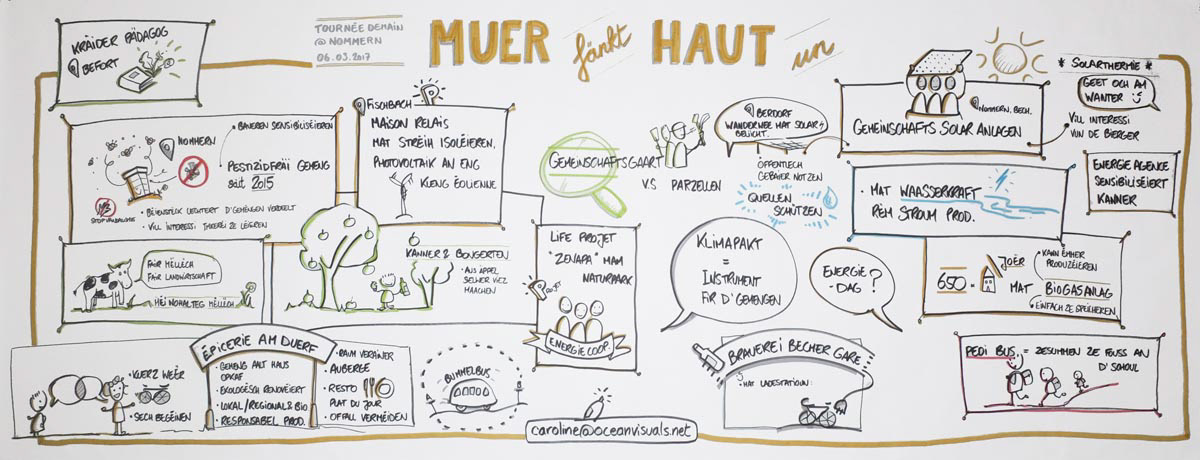 KRÄIDER PÄDAGOG
BEFORT
TOURNÉE DEMAIN
@ NOMMERN
06.03.2017
MUER fänkt HAUT un
NOMMERN
• BAUEREN SENSIBILISÉIEREN
PESTIZIDFRÄI GEMENG
seit 2015
STOP VANDALISME
• VILL INTERESSI
FISCHBACH
MAISON RELAIS
MAT STRÉIH ISOLÉIEREN,
PHOTOVOLTAIK AN ENG
KLENG ÉOLIENNE
GEMEINSCHAFTSGAART
V.S PARZELLEN
BERDORF
WANDERWEE MAT SOLAR
BELIICHT
ËFFENTLECH
GEBAIER NOTZEN
QUELLEN
SCHÜTZEN
NOMMERN, BECH,
GEMEINSCHAFTS SOLAR ANLAGEN
* SOLARTHERMIE *
GEET OCH AM
WANTER
VILL INTERESSI
VUN DE BIERGER
ENERGIE AGENCE
SENSIBILISÉIERT
KANNER
• MAT WAASSERKRAFT
RËM STROUM PROD.
FAIR MËLLECH
FAIR LANDWIRTSCHAFT
KANNER & BONGERTEN
• AUS ÄPPEL
SELWER VIEZ
MAACHEN
LIFE PROJET
"ZENAPA" MAM
NATURPARK
ENERGIE COOP.
KLIMAPAKT
=
INSTRUMENT
FIR D'GEMENGEN
ENERGIE
-DAG?
650
JOËR
MAT BIOGASANLAG
• KANN ËMMER
PRODUZÉIEREN
• EINFACH ZE SPÄICHEREN
• KUERZ WEËR
• SECH BEGÉINEN
ÉPICERIE AM DUERF
• GEMENG ALT HAUS
OPKAF
• EKOLOGËSCH RENOVÉIERT
• LOKAL/REGIONAL & BIO
• RESPONSABEL PROD.
• BAIM VERÄINER
• AUBERGE
• RESTO
PLAT DU JOUR
• OFFALL VERMEIDEN
BUMMELBUS
BRAUEREI BECHER GARE
• MAT LADESTATIOUN
PEDI BUS = ZESUMMEN ZE FOUSS AN
D'SCHOUL
caroline@oceanvisuals.net